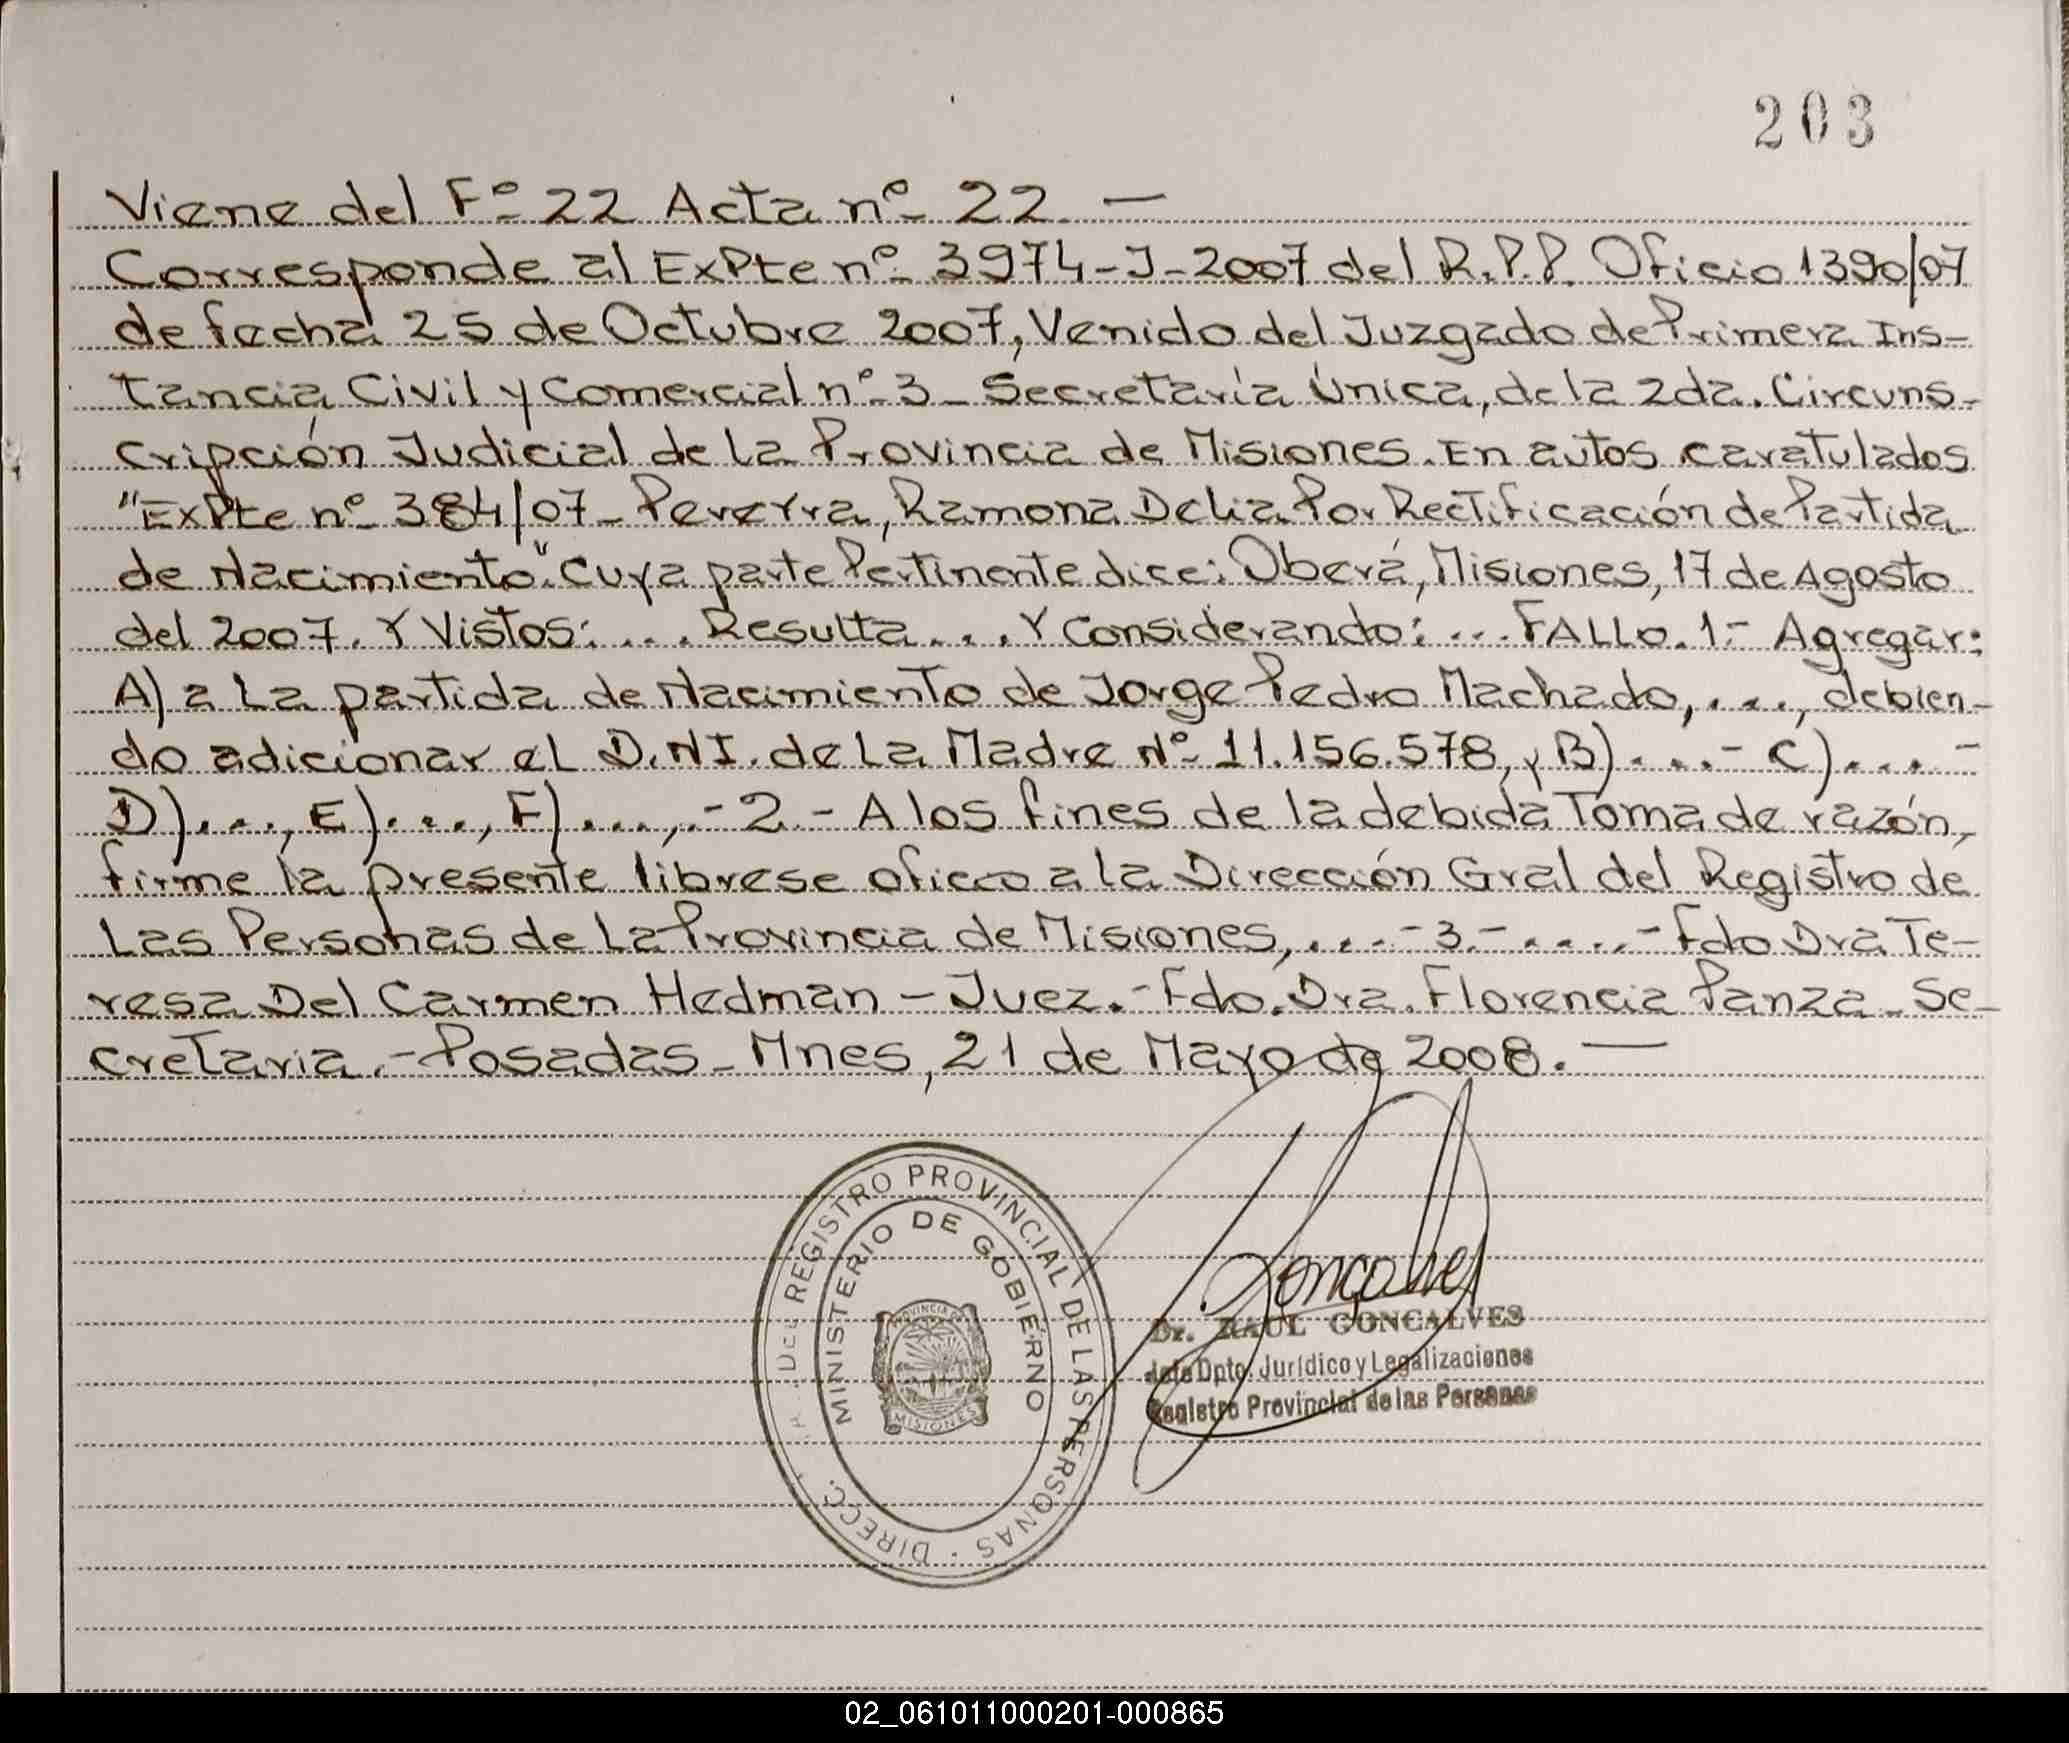 203
Viene del Fº 22 Acta nº 22. —
Corresponde al ExPte nº 3974-J-2007 del R.P.P. Oficio 1390/07
de fecha 25 de Octubre 2007, Venido del Juzgado de Primera Ins-
tancia Civil y Comercial nº 3 - Secretaría Única, de la 2da. Circuns-
cripción Judicial de la Provincia de Misiones. En autos caratulados
"ExPte nº 384/07 - Pereyra, Ramona Delia Por Rectificación de Partida
de Nacimiento". Cuya parte Pertinente dice: Oberá, Misiones, 17 de Agosto
del 2007. Y Vistos: .... Resulta .... Y Considerando: .... FALLO. 1.- Agregar:
A) a la partida de Nacimiento de Jorge Pedro Machado, ...., debien-
do adicionar el D.NI. de la Madre Nº 11.156.578, y B) ....- C) ....-
D) ...., E) ...., F) ....,.- 2.- A los fines de la debida Toma de razón,
firme la presente librese oficio a la Dirección Gral del Registro de
Las Personas de La Provincia de Misiones, ....- 3.- .....- Fdo Dra Te-
resa Del Carmen Hedman - Juez.- Fdo. Dra. Florencia Panza - Se-
cretaria.- Posadas - Mnes, 21 de Mayo de 2008. —
DEL REGISTRO PROVINCIAL DE LAS PERSONAS · DIRECC.
MINISTERIO DE GOBIERNO
PROVINCIA DE
MISIONES
Gonçalves
Dr. RAUL GONCALVES
Jefe Dpto. Jurídico y Legalizaciones
Registro Provincial de las Personas
02_061011000201-000865